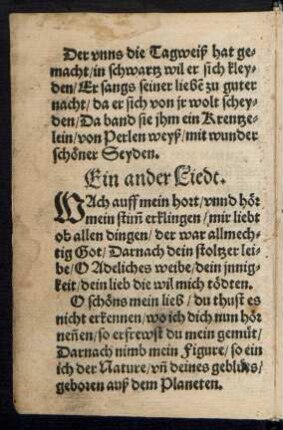 Der vnns die Tagweiß hat ge-
macht/in schwartz wil er sich kley-
den/Er sangs seiner liebẽ zu guter
nacht/da er sich von jr wolt schey-
den/Da band sie jhm ein Krentze-
lein/von Perlen weyß/mit wunder
schöner Seyden.
Ein ander Liedt.
WAch auff mein hort/vnnd hör
mein stim̃ erklingen/mir liebt
ob allen dingen/der war allmech-
tig Got/Darnach dein stoltzer lei-
be/O Adeliches weibe/dein innig-
keit/dein lieb die wil mich tödten.
O schöns mein lieb/du thust es
nicht erkennen/wo ich dich nun hör
neñen/so erfrewst du mein gemüt/
Darnach nimb mein Figure/so ein
ich der Nature/vñ deines geblüts/
geboren auß dem Planeten.